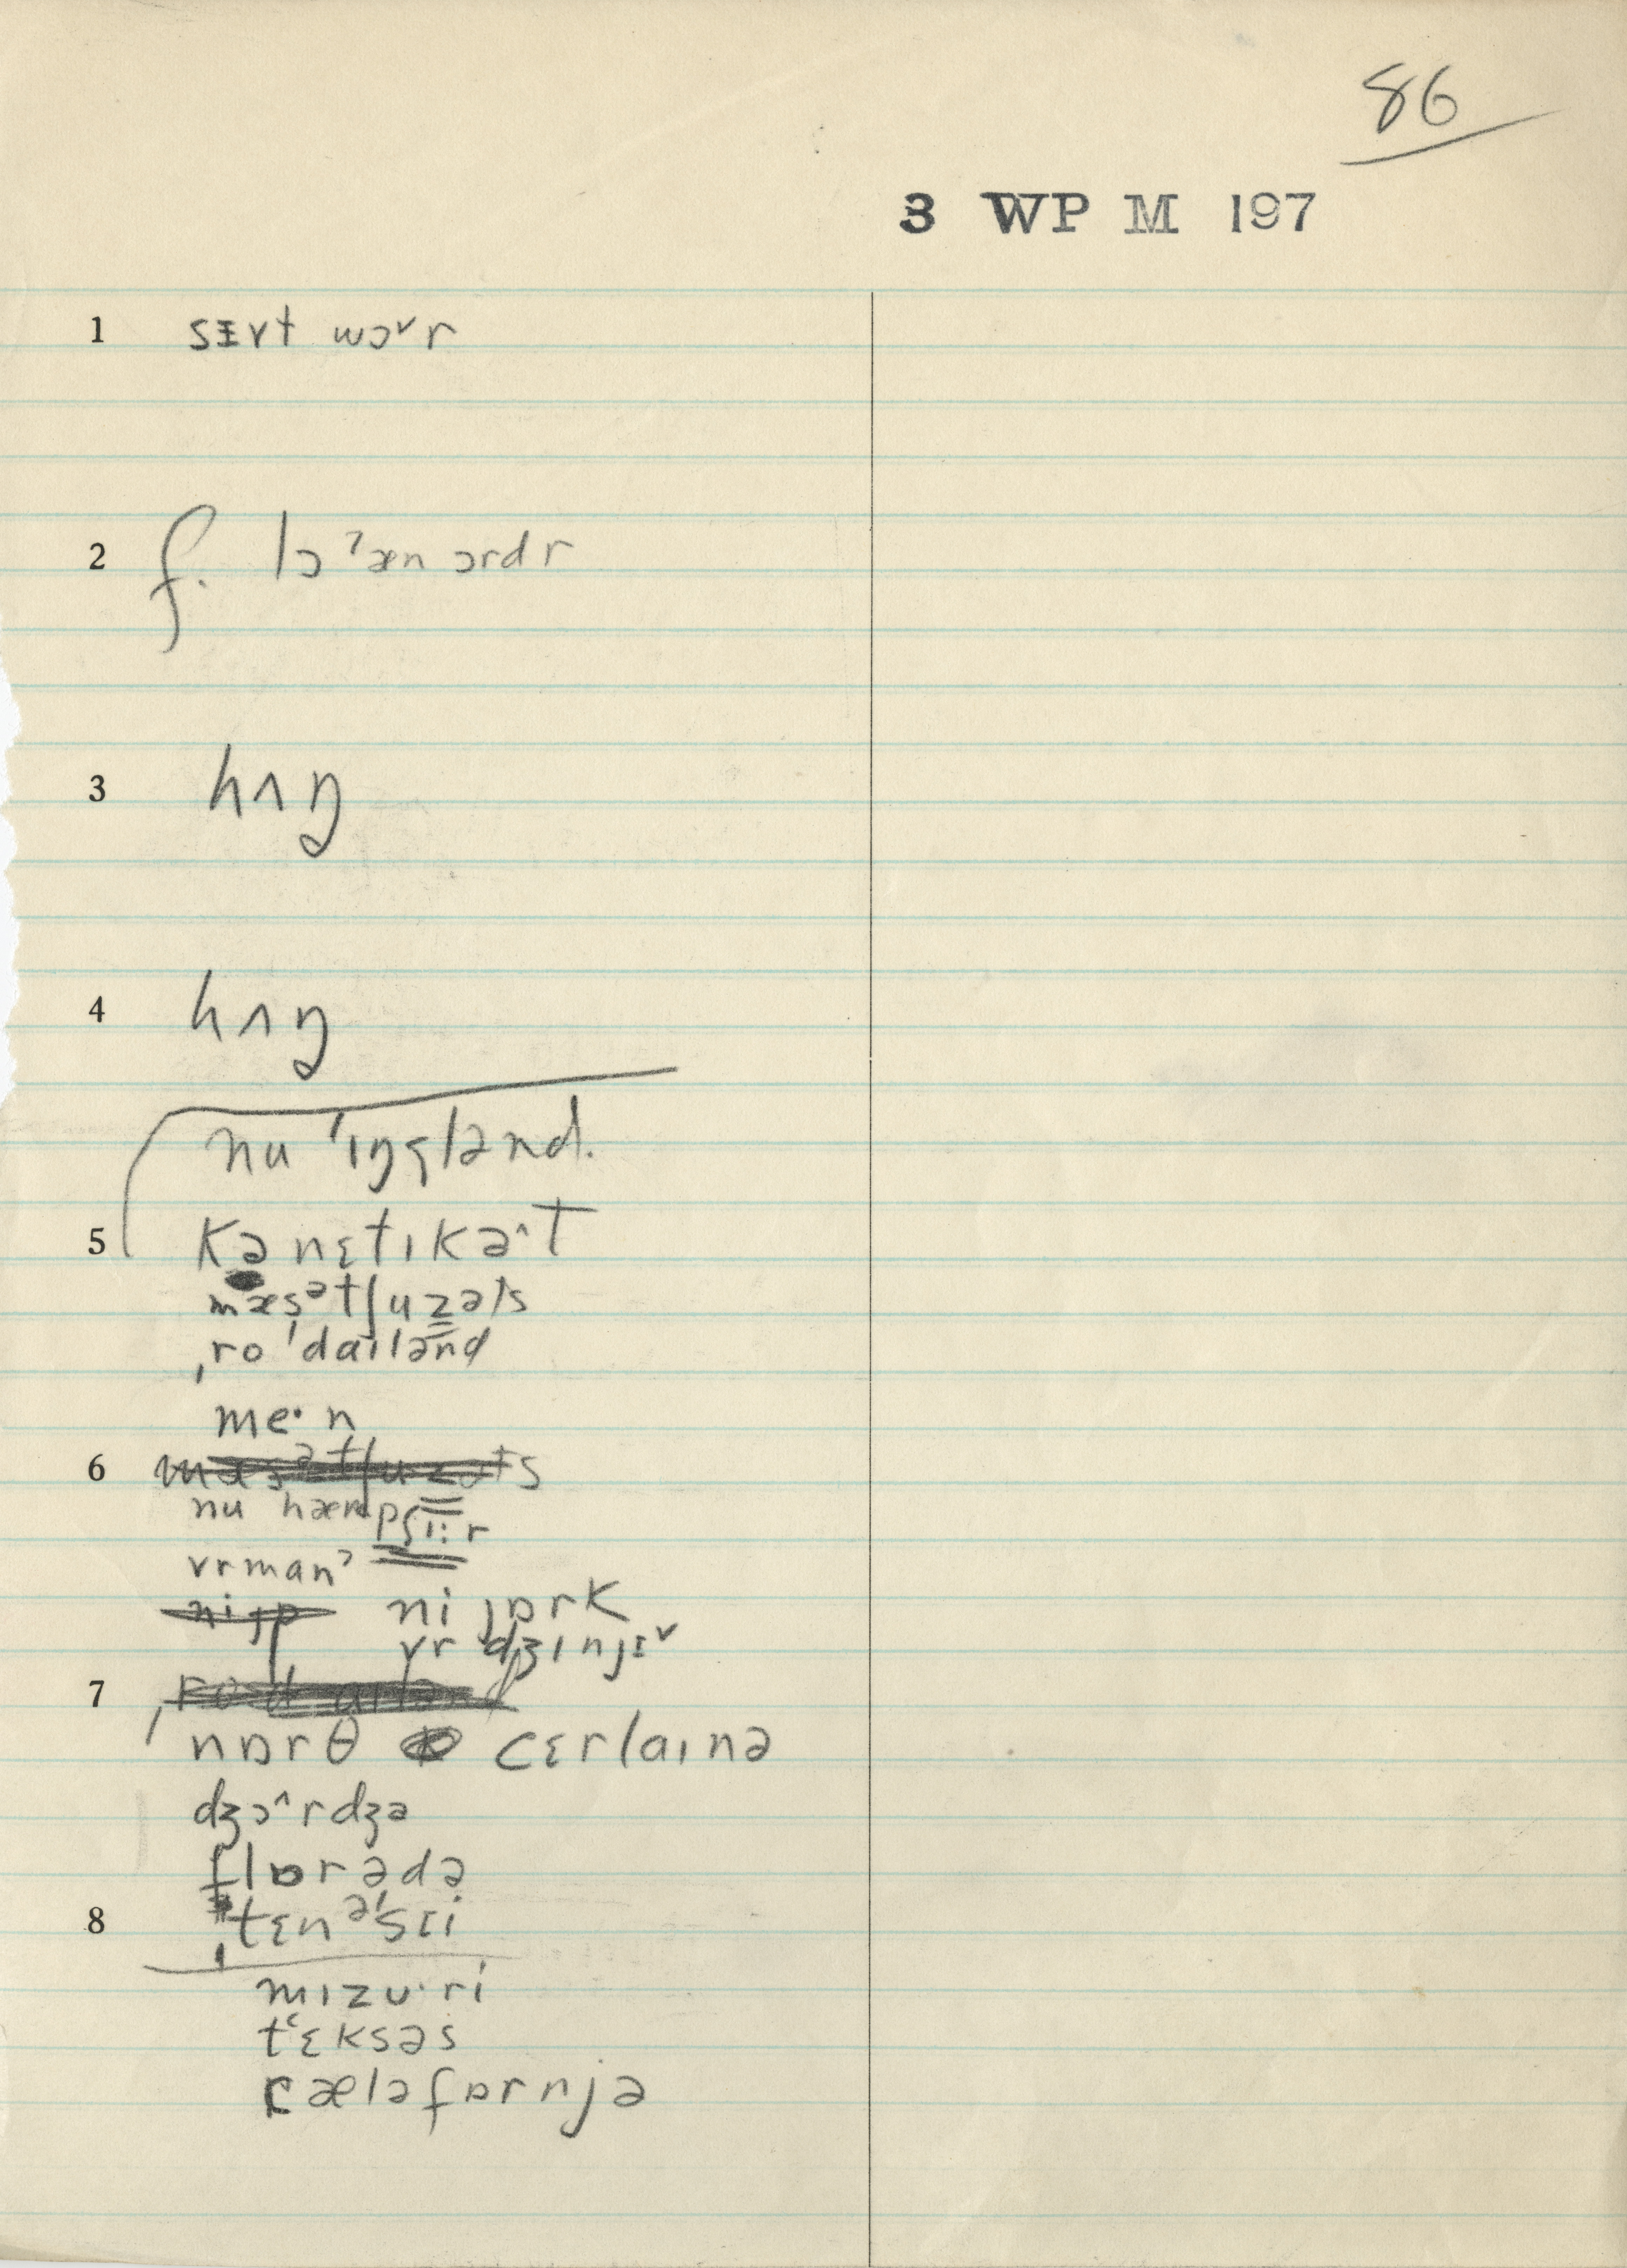 86
3 WP M 197
1 sɪvt wɔ˅r
2 f. lɔˀæn ɔrdr
3 hʌŋ
4 hʌŋ
nu ˈɪŋglənd.
5 kənɛtɪkə^t
mæsətʃuzəts
ˌroˈdaɪlənd
me·n
6 mæsətʃuzəts
nu hæmpʃɪ:r
vrmanˀ
nijɒ ni jɒrk
vr dʒɪnjɛ˅
7 ˌrodaɪlənd
nɒrθ cɛrlaɪnə
dʒɔ^rdʒə
flɒrədə
8 ˌtɛnəˈsɪi
mɪzʊ·ri
tʻɛksəs
cæləfɒrnjə